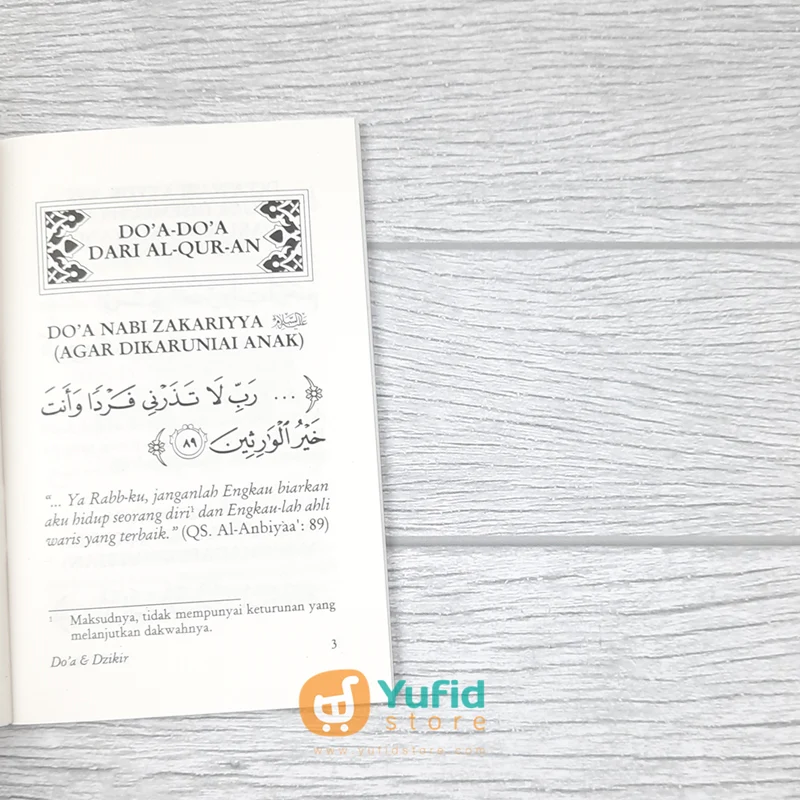 DO'A-DO'A
DARI AL-QUR-AN
DO'A NABI ZAKARIYYA عليه السلام
(AGAR DIKARUNIAI ANAK)
﴿ ... رَبِّ لَا تَذَرْنِي فَرْدًا وَأَنتَ
خَيْرُ ٱلْوَٰرِثِينَ ٨٩ ﴾
“... Ya Rabb-ku, janganlah Engkau biarkan
aku hidup seorang diri¹ dan Engkau-lah ahli
waris yang terbaik.” (QS. Al-Anbiyaa': 89)
¹ Maksudnya, tidak mempunyai keturunan yang
melanjutkan dakwahnya.
3
Do'a & Dzikir
Yufid
store
www.yufidstore.com